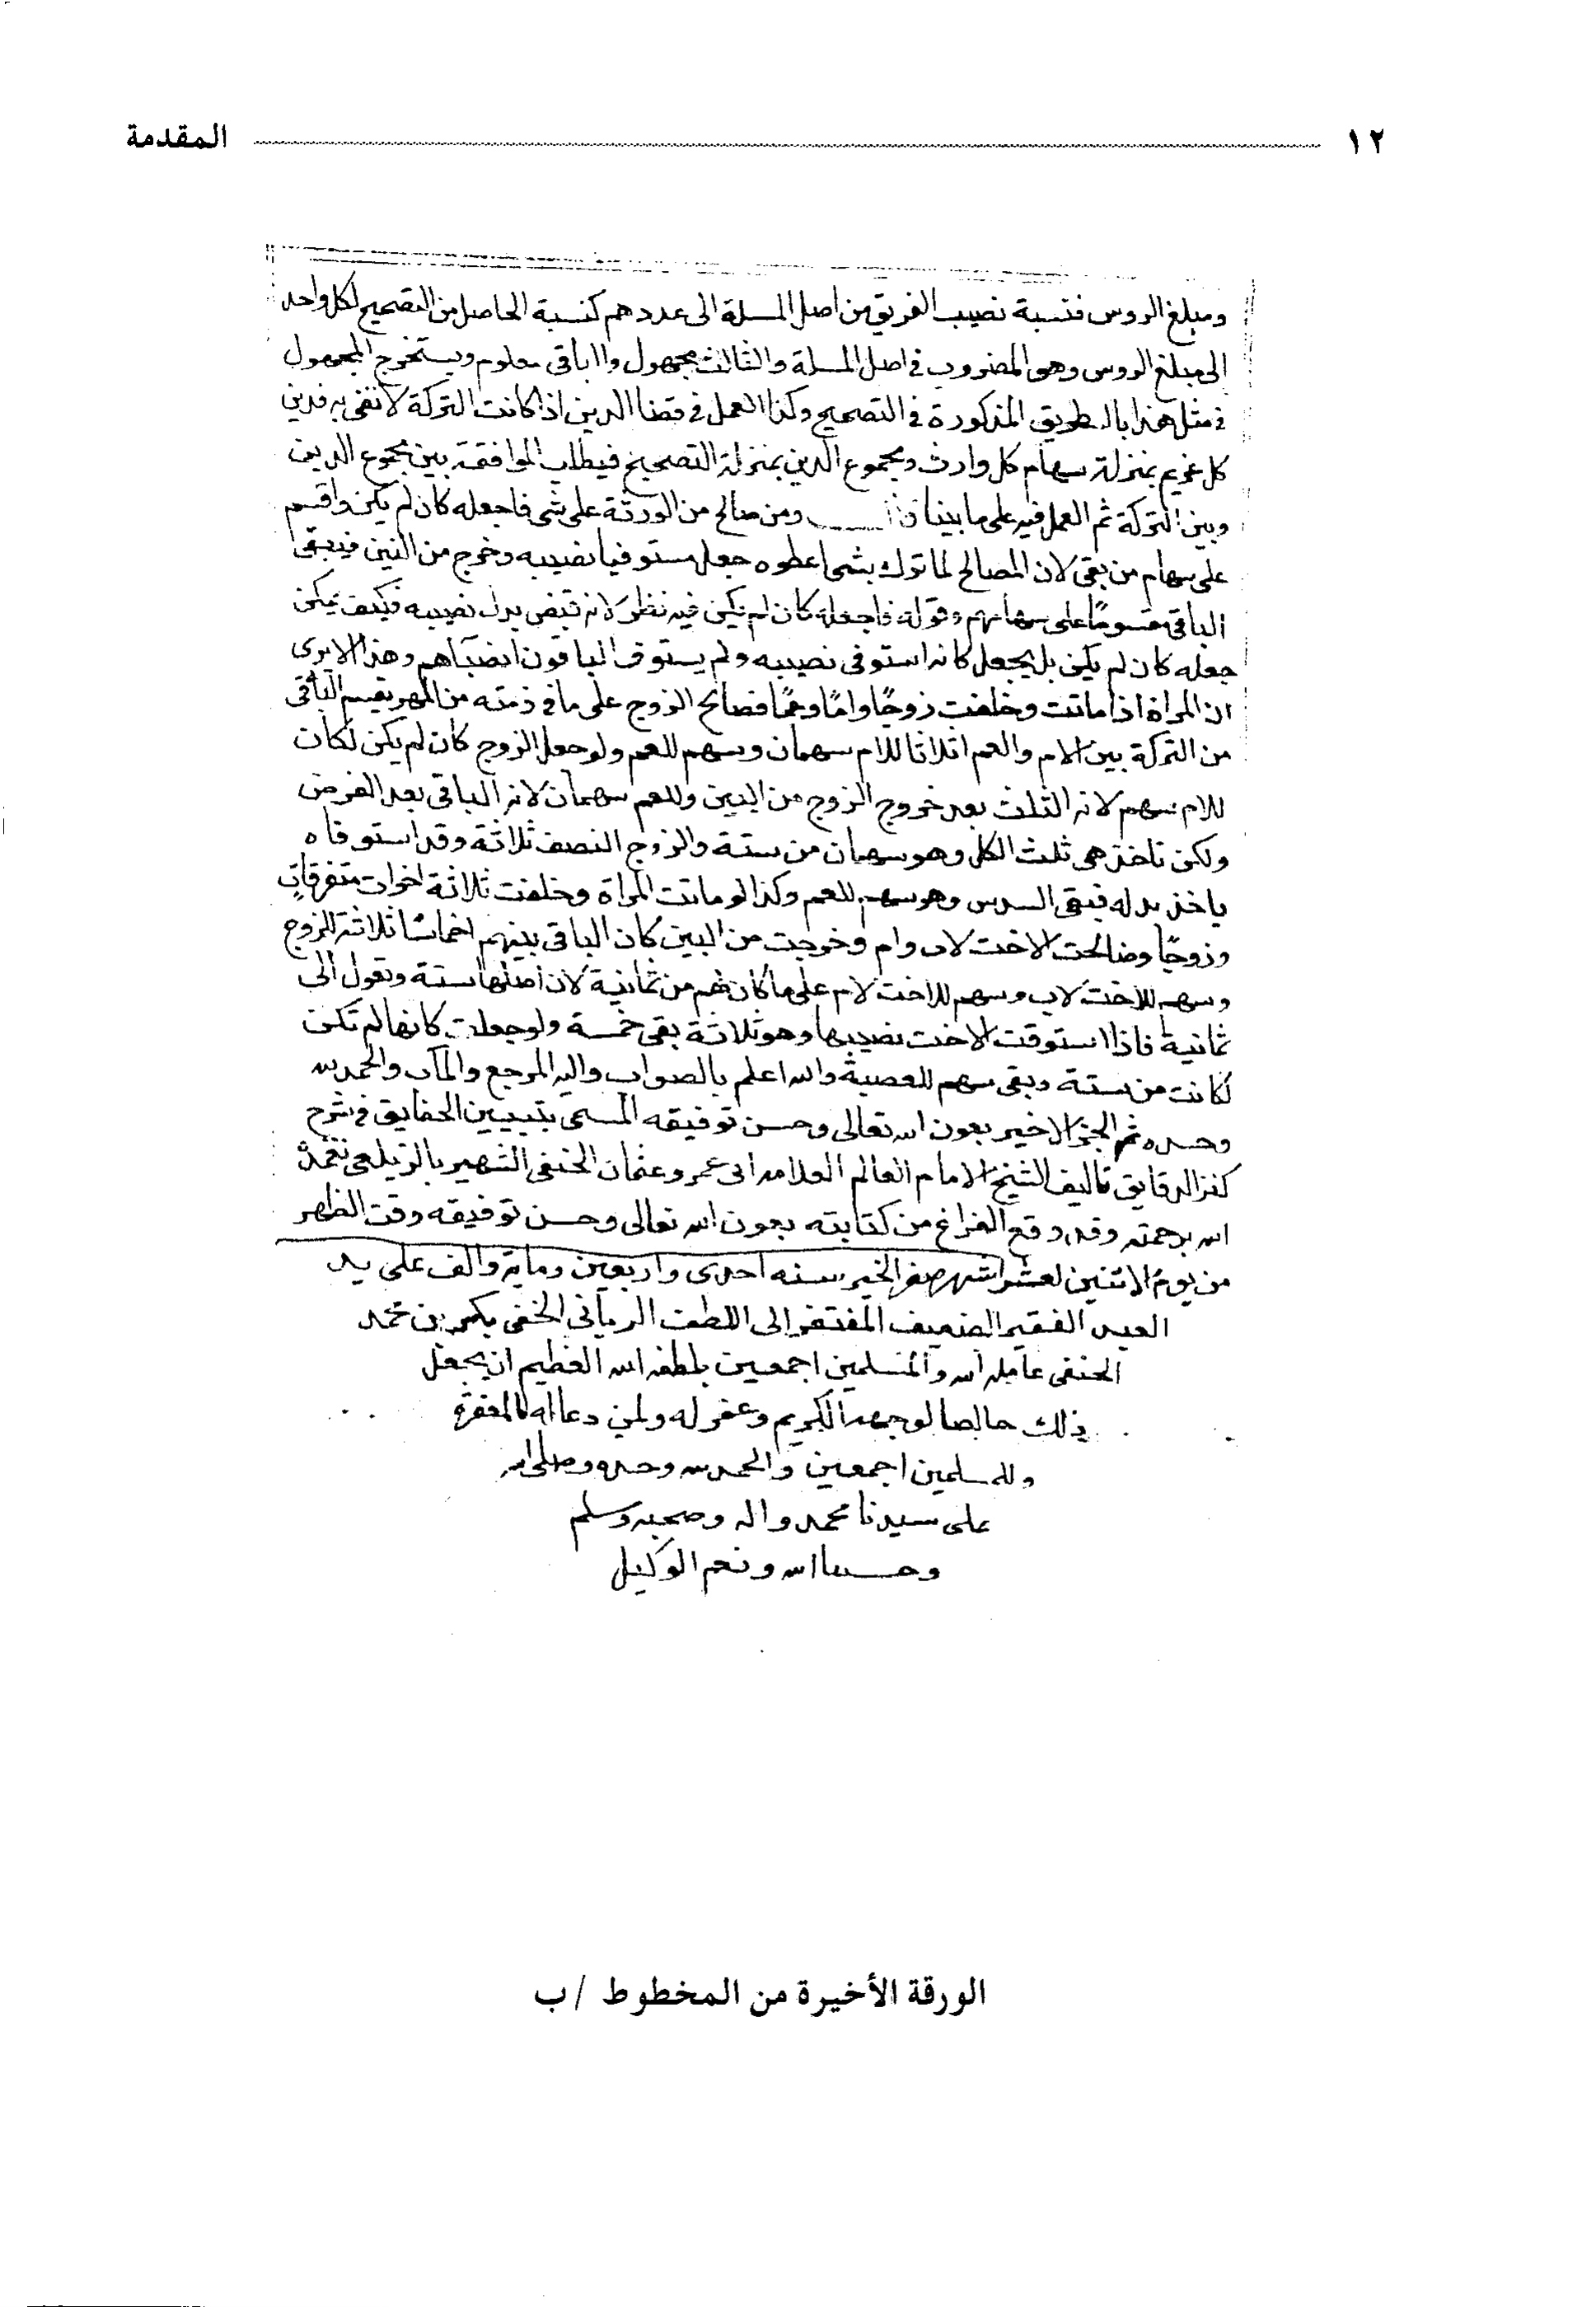 ١٢ المقدمة
ومبلغ الروس فنسبة نصيب الفريق من اصل المسلة الى عددهم كنسبة الحاصل من التصحيح لكل واحد
الى مبلغ الروس وهو المضروب في اصل المسلة والثالث مجهول والباقى معلوم ويستخرج المجهول
في مثل هذا بالطريق المذكورة في التصحيح وكذا العمل في قضا الدين اذا كانت التركة لا تفى به فدين
كل غريم بمنزلة سهام كل وارث ومجموع الدين بمنزلة التصحيح فيطلب الموافقة بين مجموع الدين
وبين التركة ثم العمل فيه على ما بينا ومن صالح من الورثة على شى فاجعله كان لم يكن واقسم
على سهام من بقى لان المصالح لما ترك بشى اعطوه جعل مستوفيا نصيبه وخرج من البين فيبقى
الباقى مقسوما على سهامهم وقوله فاجعله كان لم يكن فيه نظر لانه قبض بدل نصيبه فكيف يمكن
جعله كان لم يكن بل يجعل كانه استوفى نصيبه ولم يستوف الباقون انصباهم وهذا الا يرى
ان المراة اذا ماتت وخلفت زوجًا وامًا وعمًا فصالح الزوج على ما في ذمته من المهر يقسم الباقى
من التركة بين الام والعم اثلاثا للام سهمان وسهم للعم ولو جعل الزوج كان لم يكن لكان
للام سهم لانه الثلث بعد خروج الزوج من البين وللعم سهمان لانه الباقى بعد الفرض
ولكن تاخذ هى ثلث الكل وهو سهمان من ستة وللزوج النصف ثلاثة وقد استوفاه
ياخذ بدله فيبقى السدس وهو سهم للعم وكذا لو ماتت المراة وخلفت ثلاثة اخوات متفرقات
وزوجًا وصالحت الاخت لاب وام وخرجت من البين كان الباقى بينهم اخماسًا ثلاثة للزوج
وسهم للاخت لاب وسهم للاخت لام على ما كان لهم من ثمانية لان اصلها ستة وتعول الى
ثمانية فاذا استوفت الاخت نصيبها وهو ثلاثة بقى خمسة ولو جعلت كانها لم تكن
لكانت من ستة وبقى سهم للعصبة والله اعلم بالصواب واليه المرجع والمآب والحمد لله
وحده تم الجزؤ الاخير بعون الله تعالى وحسن توفيقه المسمى بتبيين الحقايق في شرح
كنز الدقايق تاليف الشيخ الامام العالم العلامه ابى عمرو عثمان الحنفى الشهير بالزيلعى تغمده
الله برحمته وقد وقع الفراغ من كتابته بعون الله تعالى وحسن توفيقه وقت الظهر
من يوم الاثنين لعشر اشهر صفر الخير سنه احدى واربعين وماية والف على يد
العبد الفقير الضعيف المفتقر الى اللطف الربانى الخفى بن محمد
الحنفى عامله الله والمسلمين اجمعين بلطفه الله العظيم ان يجعل
ذلك خالصا لوجهه الكريم وغفر له ولمن دعا له بالمغفرة
وللمسلمين اجمعين والحمد لله وحده وصلى الله
على سيدنا محمد واله وصحبه وسلم
وحسبنا الله ونعم الوكيل
الورقة الأخيرة من المخطوط / ب